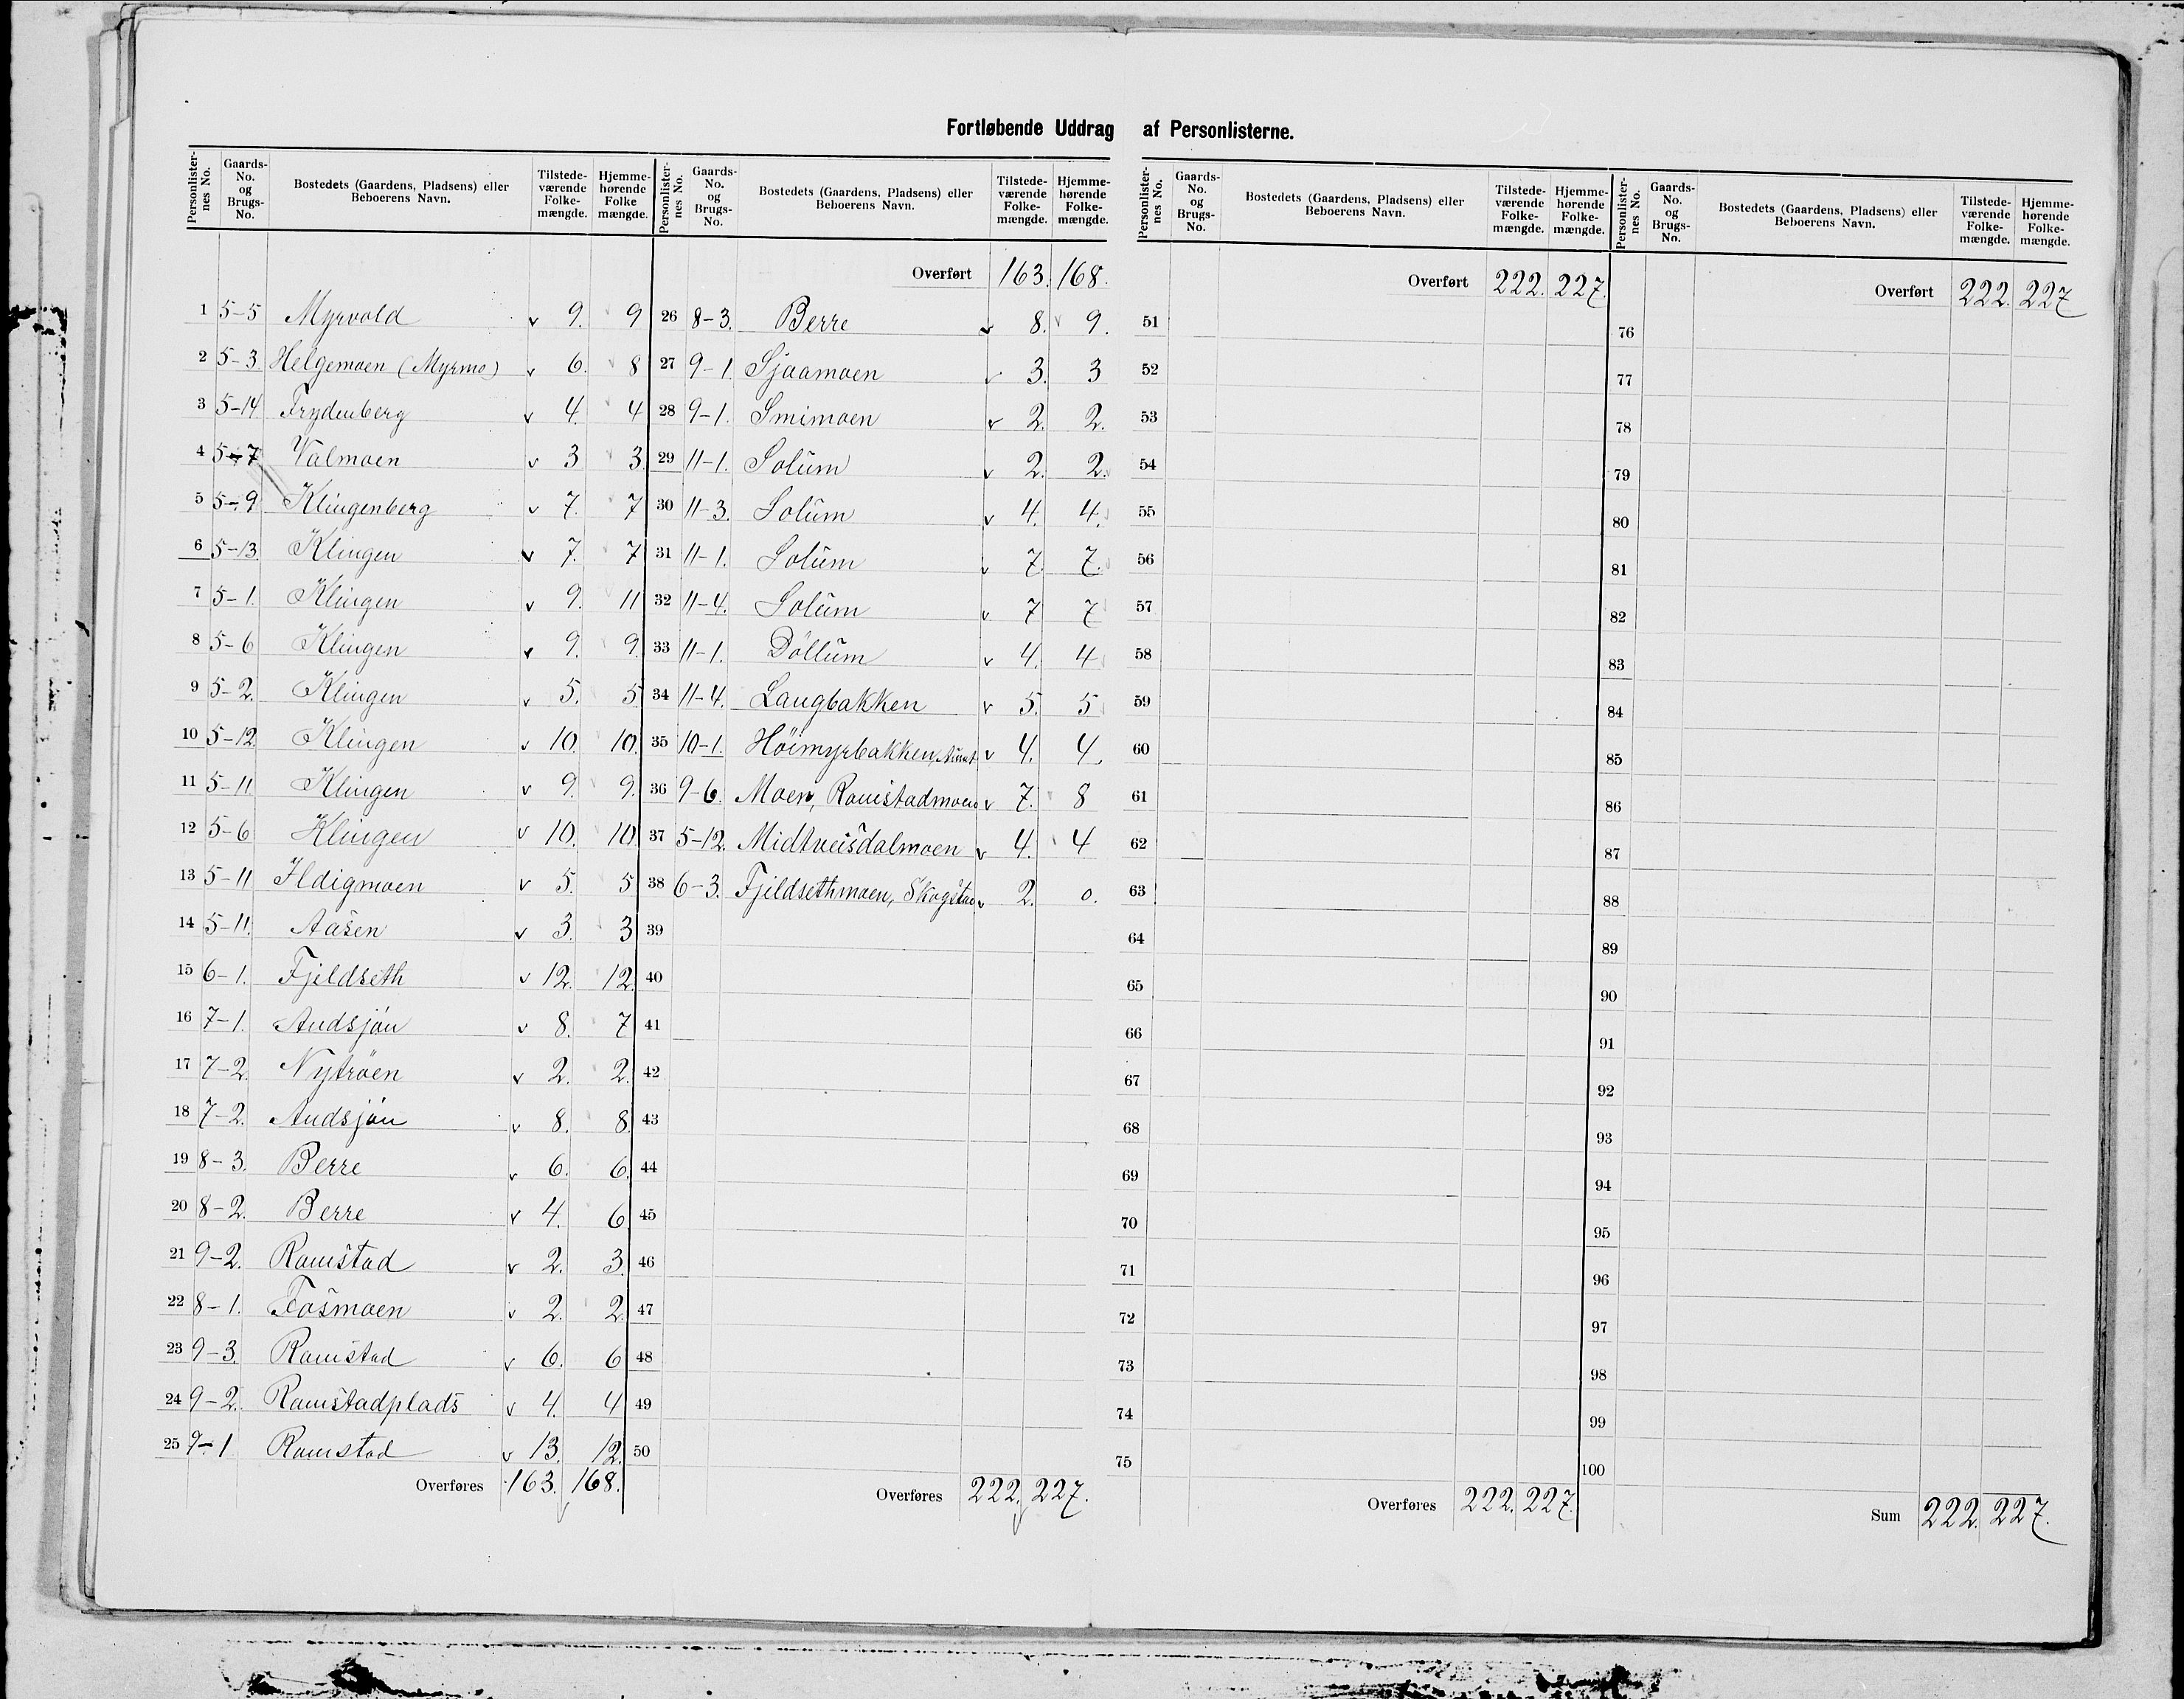 Fortløbende Uddrag af Personlisterne.
Personlisternes No. | Gaards-No. og Brugs-No. | Bostedets (Gaardens, Pladsens) eller Beboerens Navn. | Tilstedeværende Folkemængde. | Hjemmehørende Folke mængde.
1 5-5 Myrvold v 9. 9
2 5-3 Helgemoen (Myrmo) v 6. 8
3 5-14 Frydenberg v 4. 4
4 5-7 Valmoen v 3 3
5 5-9 Klingenberg v 7. 7
6 5-13 Klingen v 7. 7
7 5-1. Klingen v 9. 11
8 5-6 Klingen v 9. 9
9 5-2. Klingen v 5. 5
10 5-12. Klingen v 10. 10.
11 5-11. Klingen v 9. 9.
12 5-6 Klingen v 10. 10
13 5-11 Ildigmoen v 5. 5
14 5-11. Aasen v 3. 3
15 6-1. Fjeldseth v 12. 12
16 7-1. Audsjön v 8. 7
17 7-2. Nytröen v 2. 2.
18 7-2. Audsjön v 8. 8
19 8-3. Berre v 6. 6
20 8-2. Berre v 4. 6
21 9-2. Ramstad v 2. 3
22 8-1. Fosmoen v 2. 2
23 9-3. Ramstad v 6. 6
24 9-2. Ramstadplads v 4. 4
25 9-1 Ramstad v 13. 12.
Overføres 163. 168.
Personlisternes No. | Gaards-No. og Brugs-No. | Bostedets (Gaardens, Pladsens) eller Beboerens Navn. | Tilstedeværende Folkemængde. | Hjemmehørende Folkemængde.
Overført 163. 168.
26 8-3. Berre v 8. 9.
27 9-1. Sjaamoen v 3. 3
28 9-1. Smimoen v 2. 2.
29 11-1. Solum v 2. 2.
30 11-3. Solum v 4. 4.
31 11-1. Solum v 7. 7.
32 11-4. Solum v 7 7
33 11-1. Döllum v 4. 4
34 11-4. Langbakken v 5. 5
35 10-1. Höimyrbakken, v 4. 4.
36 9-6. Moen, Ramstadmoen v 7. 8
37 5-12. Midtveisdalmoen v 4. 4
38 6-3. Fjeldsethmoen, Skogstad v 2. 0.
39
40
41
42
43
44
45
46
47
48
49
50
Overføres 222. 227.
Personlisternes No. | Gaards-No. og Brugs-No. | Bostedets (Gaardens, Pladsens) eller Beboerens Navn. | Tilstedeværende Folkemængde. | Hjemmehørende Folkemængde.
Overført 222. 227.
51
52
53
54
55
56
57
58
59
60
61
62
63
64
65
66
67
68
69
70
71
72
73
74
75
Overføres 222. 227.
Personlisternes No. | Gaards-No. og Brugs-No. | Bostedets (Gaardens, Pladsens) eller Beboerens Navn. | Tilstedeværende Folkemængde. | Hjemmehørende Folkemængde.
Overført 222. 227
76
77
78
79
80
81
82
83
84
85
86
87
88
89
90
91
92
93
94
95
96
97
98
99
100
Sum 222. 227.